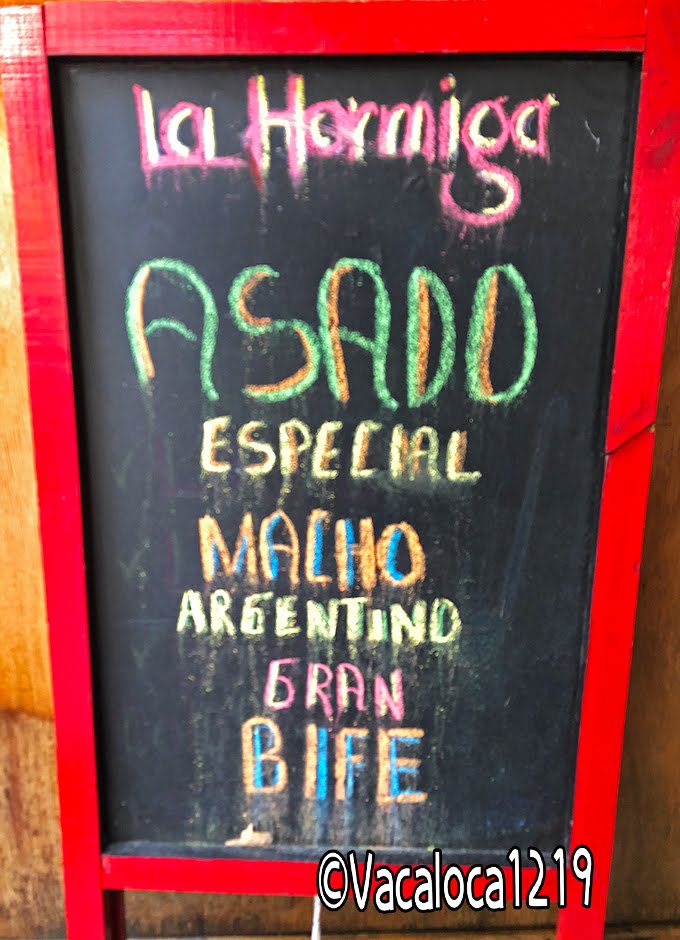 La Hormiga
ASADO
ESPECIAL
MACHO
ARGENTINO
GRAN
BIFE
©Vacaloca1219